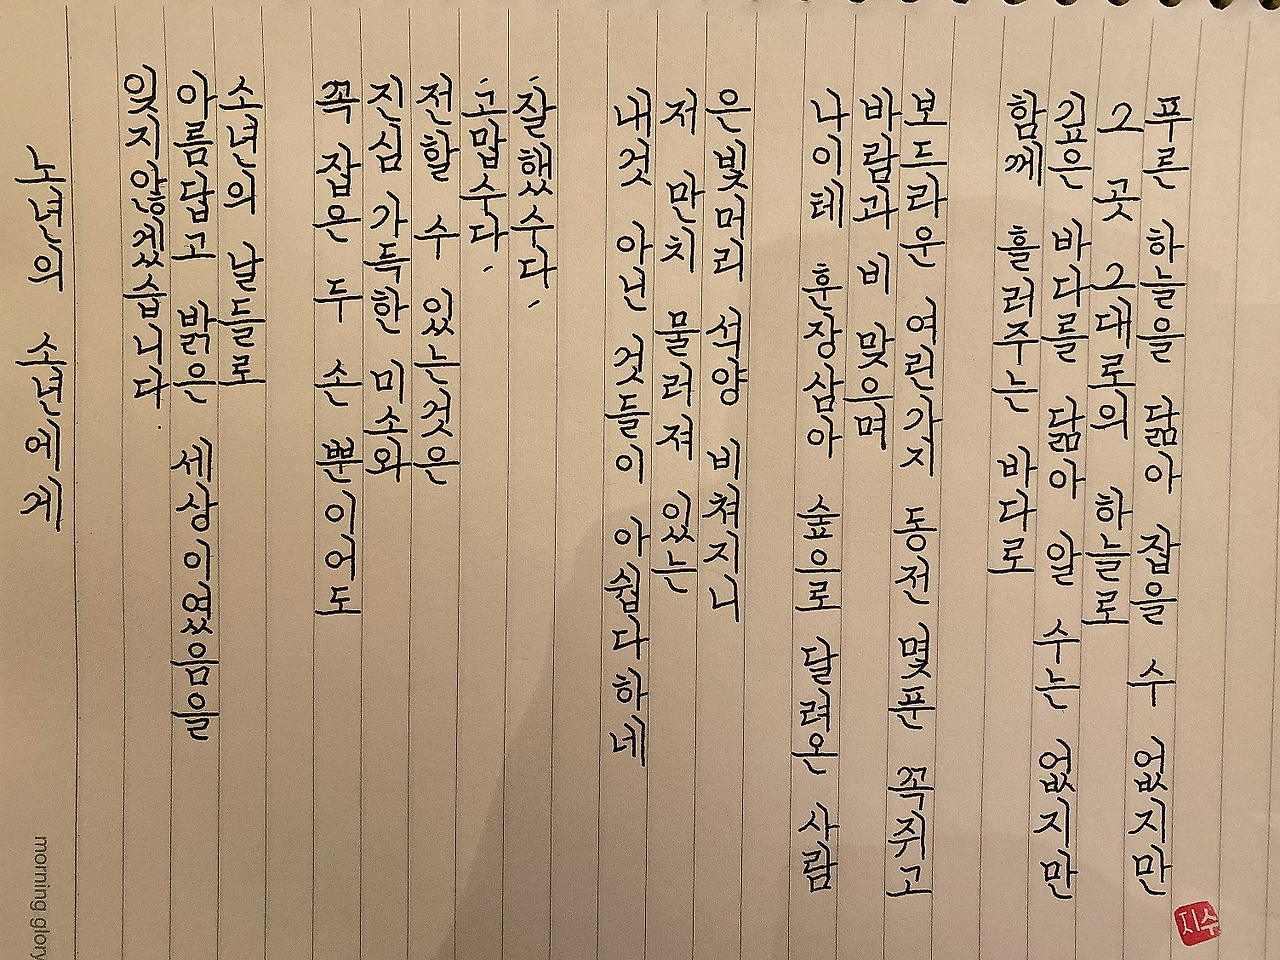 푸른 하늘을 닮아 잡을 수 없지만
그 곳 그대로의 하늘로
깊은 바다를 닮아 알 수는 없지만
함께 흘러주는 바다로
보드라운 여린가지 동전 몇푼 꼭쥐고
바람과 비 맞으며
나이테 훈장삼아 숲으로 달려온 사람
은빛머리 석양 비쳐지니
저 만치 물러져 있는
내것 아닌 것들이 아쉽다하네
'잘했수다'
'고맙수다'
전할 수 있는것은
진심 가득한 미소와
꼭 잡은 두 손 뿐이어도
소년의 날들로
아름답고 밝은 세상이였음을
잊지않겠습니다.
노년의 소년에게
지수
morning glory